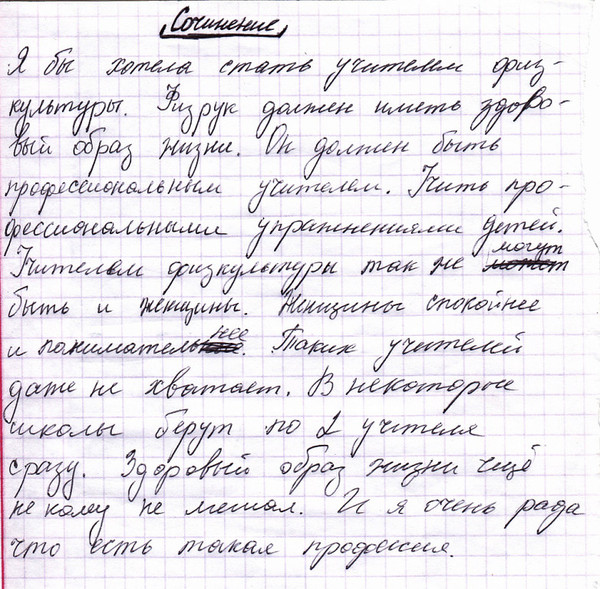 Сочинение
Я бы хотела стать учителем физ-
культуры. Физрук должен иметь здоро-
вый образ жизни. Он должен быть
профессиональным учителем. Учить про-
фессиональными упражнениями детей.
Учителем физкультуры так же могут
быть и женщины. Женщины спокойнее
и понимательнее. Таких учителей
даже не хватает. В некоторые
школы берут по 2 учителя
сразу. Здоровый образ жизни ещё
не кому не мешал. И я очень рада
что есть такая професия.